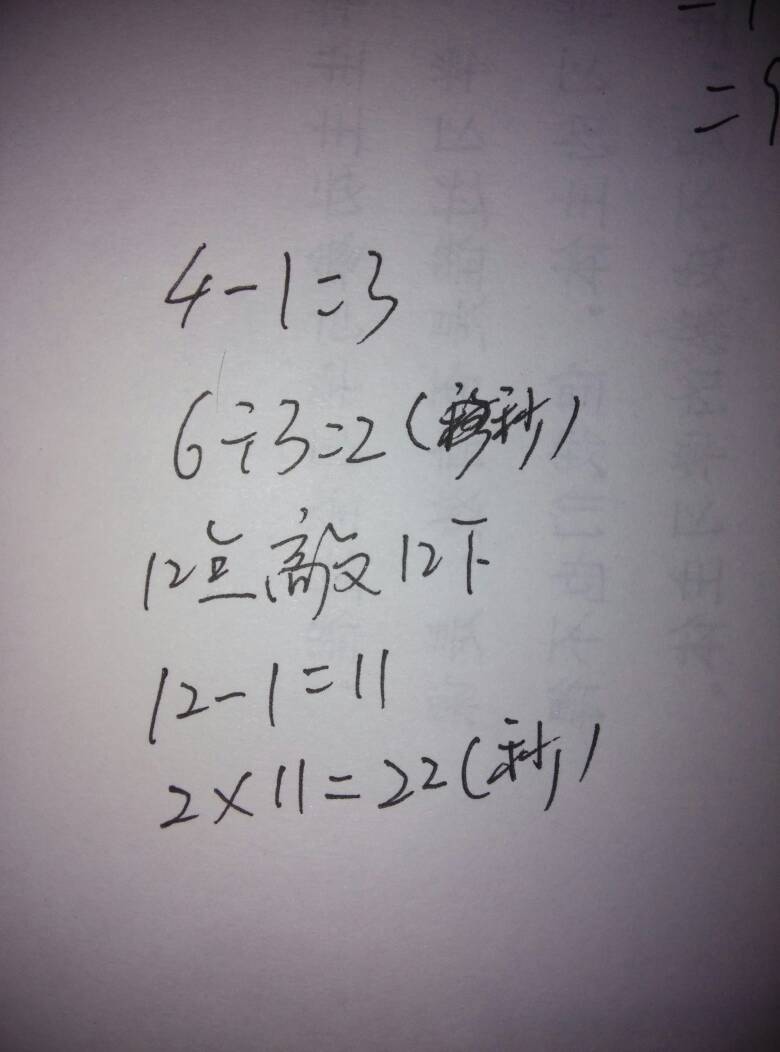 4-1=3
6÷3=2(秒)
12点敲12下
12-1=11
2×11=22(秒)